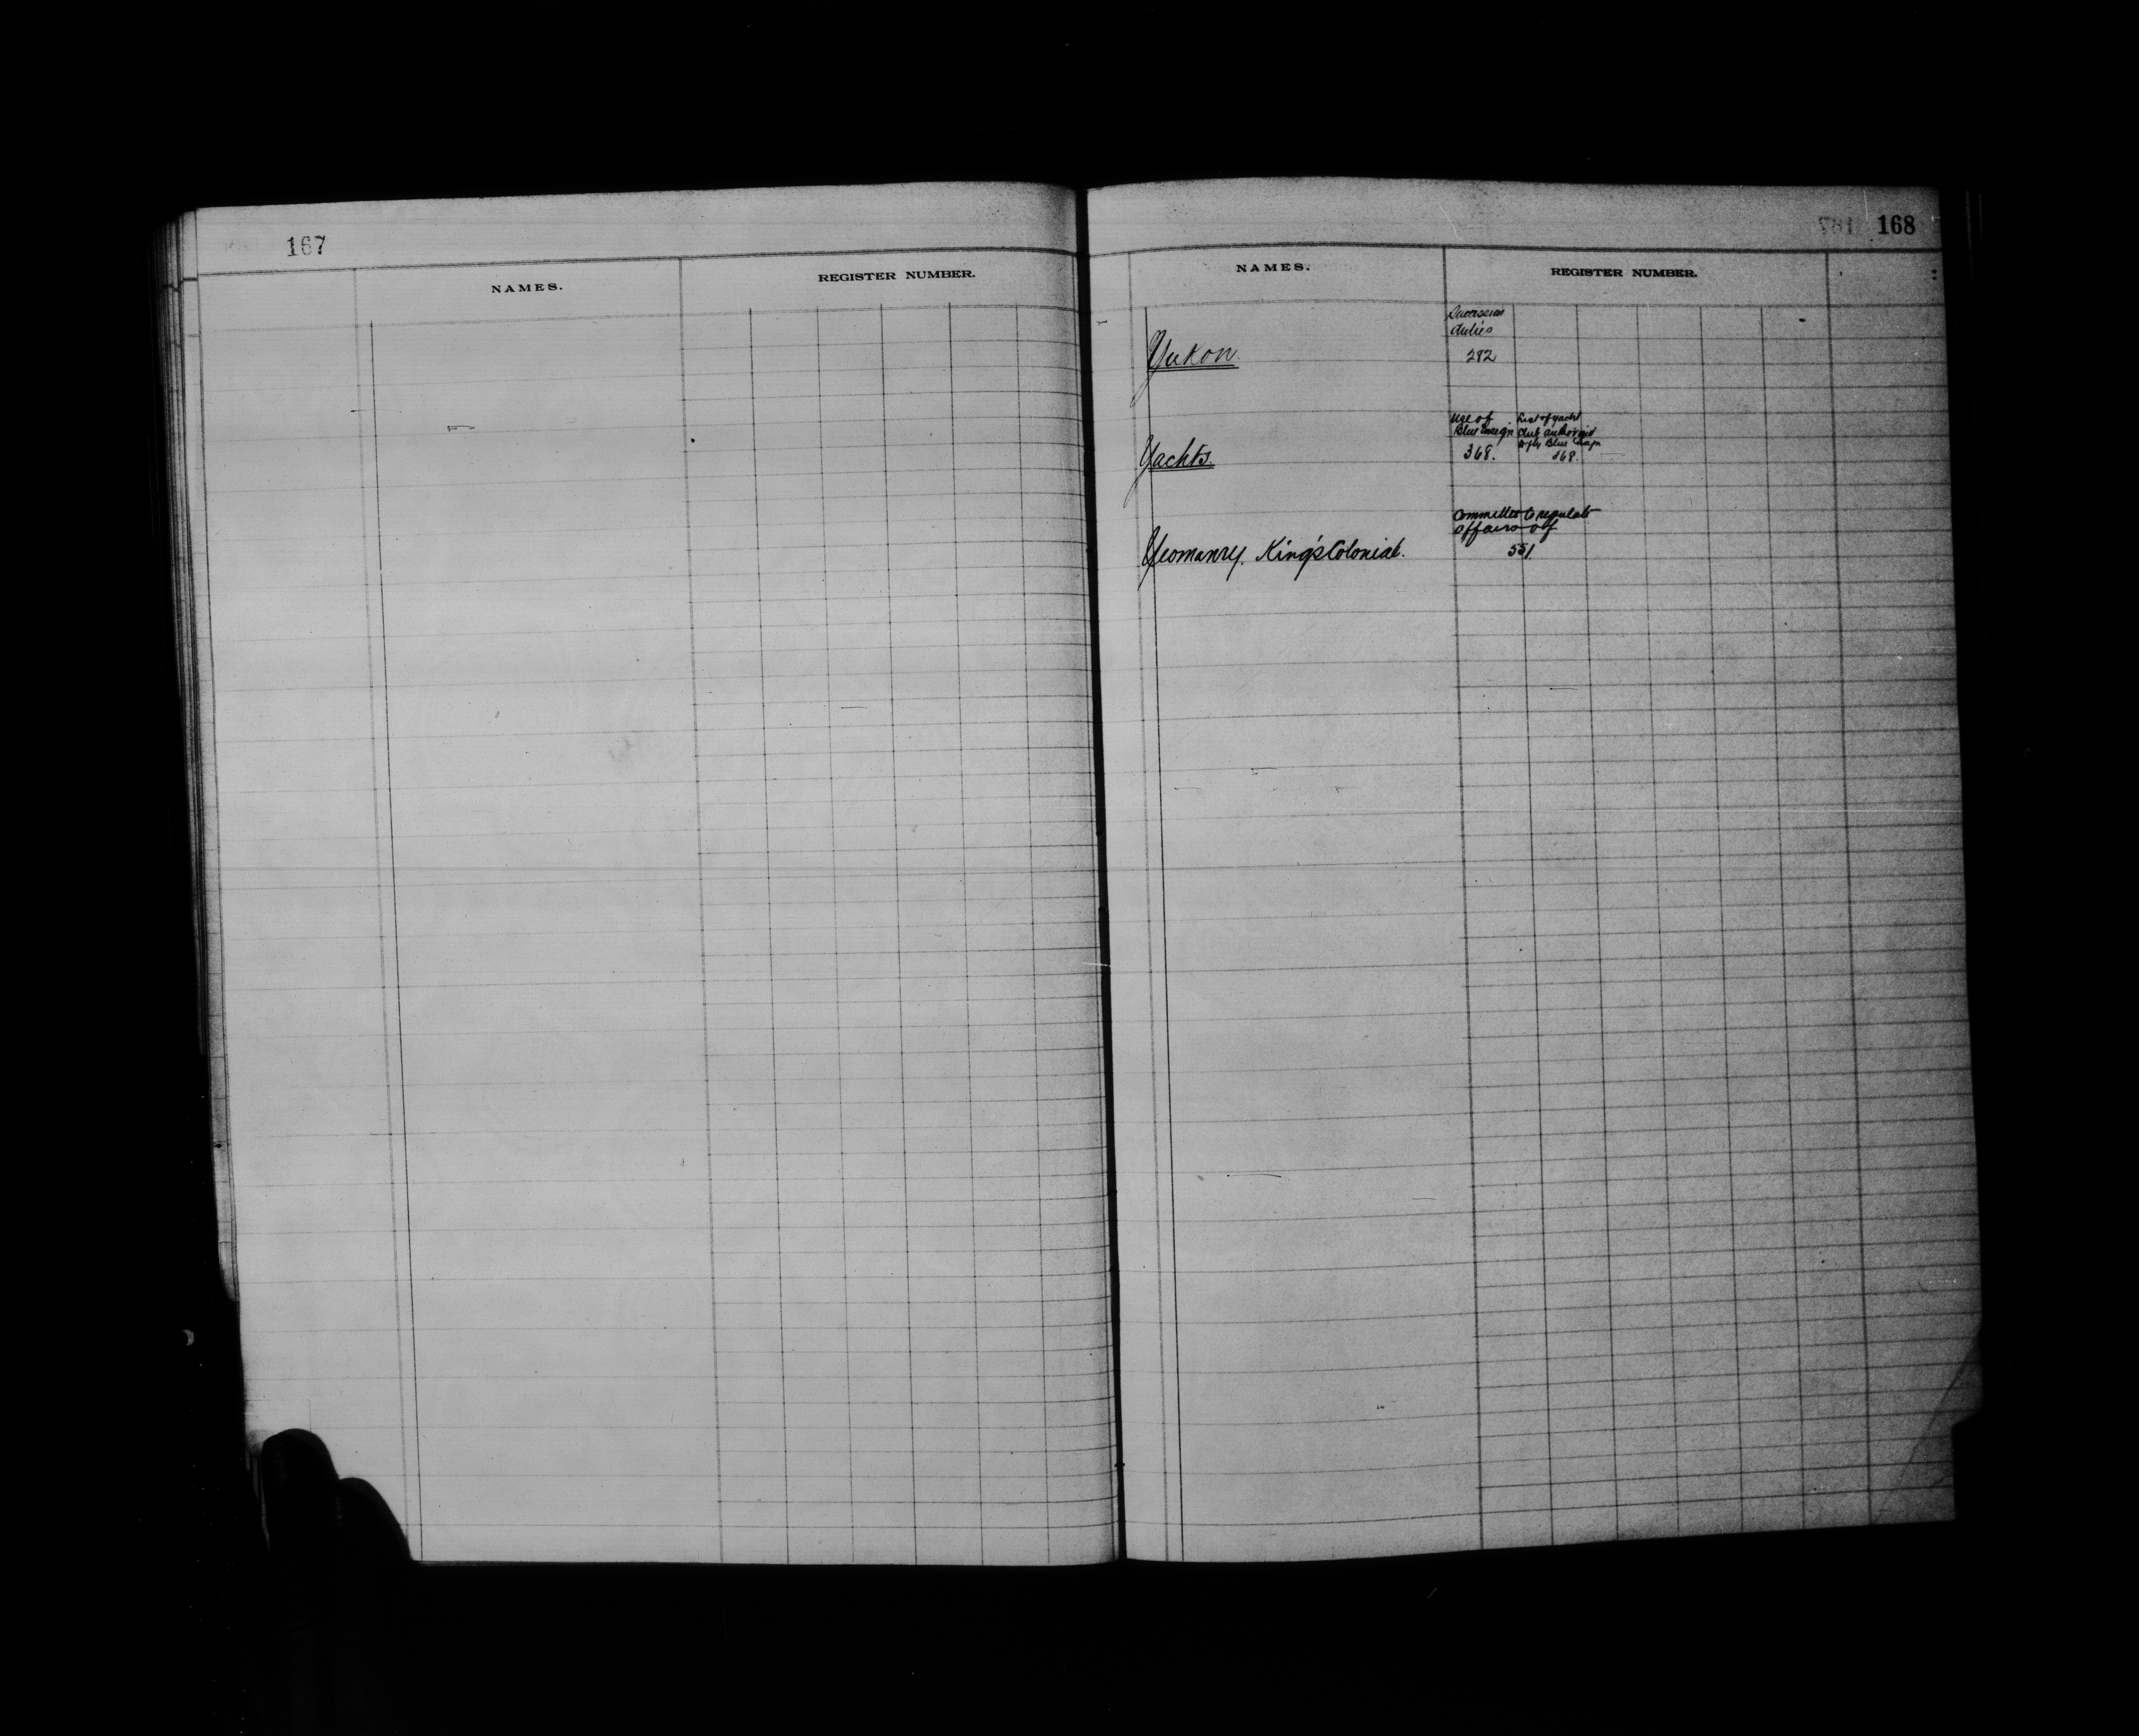 167
NAMES.
REGISTER NUMBER.
168
NAMES.
REGISTER NUMBER.
Succession
duties
Yukon.
282
Use of
Blue Ensign
368.
List of yacht
club authorized
to fly Blue Ensign
368.
Yachts.
Committee to regulate
affairs of
551.
Yeomanry. King's Colonial.